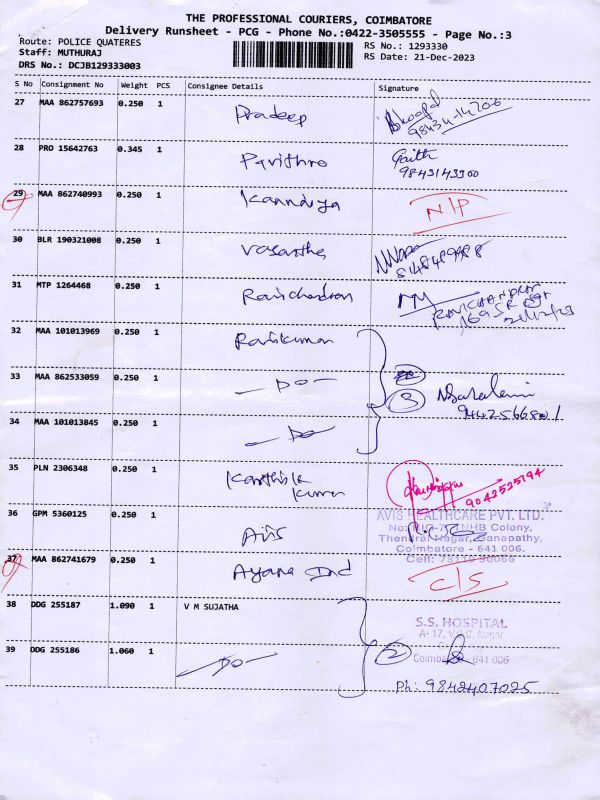 THE PROFESSIONAL COURIERS, COIMBATORE
Delivery Runsheet - PCG - Phone No.:0422-3505555 - Page No.:3
Route: POLICE QUATERES
Staff: MUTHURAJ
DRS No.: DCJB129333003
RS No.: 1293330
RS Date: 21-Dec-2023
S No Consignment No Weight PCS Consignee Details Signature
27 MAA 862757693 0.250 1 Pradeep
98434-14706
28 PRO 15642763 0.345 1 Pavithra
9843143300
29 MAA 862740993 0.250 1 N/P
30 BLR 190321008 0.250 1 Vasantha
31 MTP 1264468 0.250 1 Ravichandran
RAVICHANDRAN
21/12/23
32 MAA 101013969 0.250 1 Ravikumar
33 MAA 862533059 0.250 1 - Do - 3
9442566801
34 MAA 101013845 0.250 1 - Do -
35 PLN 2306348 0.250 1 Karthik
Kumar
9042525194
36 GPM 5360125 0.250 1 Avis
AVIS HEALTHCARE PVT. LTD.
TNHB Colony,
Thendral Nagar, Ganapathy,
Coimbatore - 641 006.
Cell: 78110 90066
37 MAA 862741679 0.250 1 Ayana Ind C/S
38 DDG 255187 1.090 1 V M SUJATHA
S.S. HOSPITAL
A- 17, V.O.C. Nagar
39 DDG 255186 1.060 1 - Do - 2
Coimbatore 641 006
Ph: 9842407025